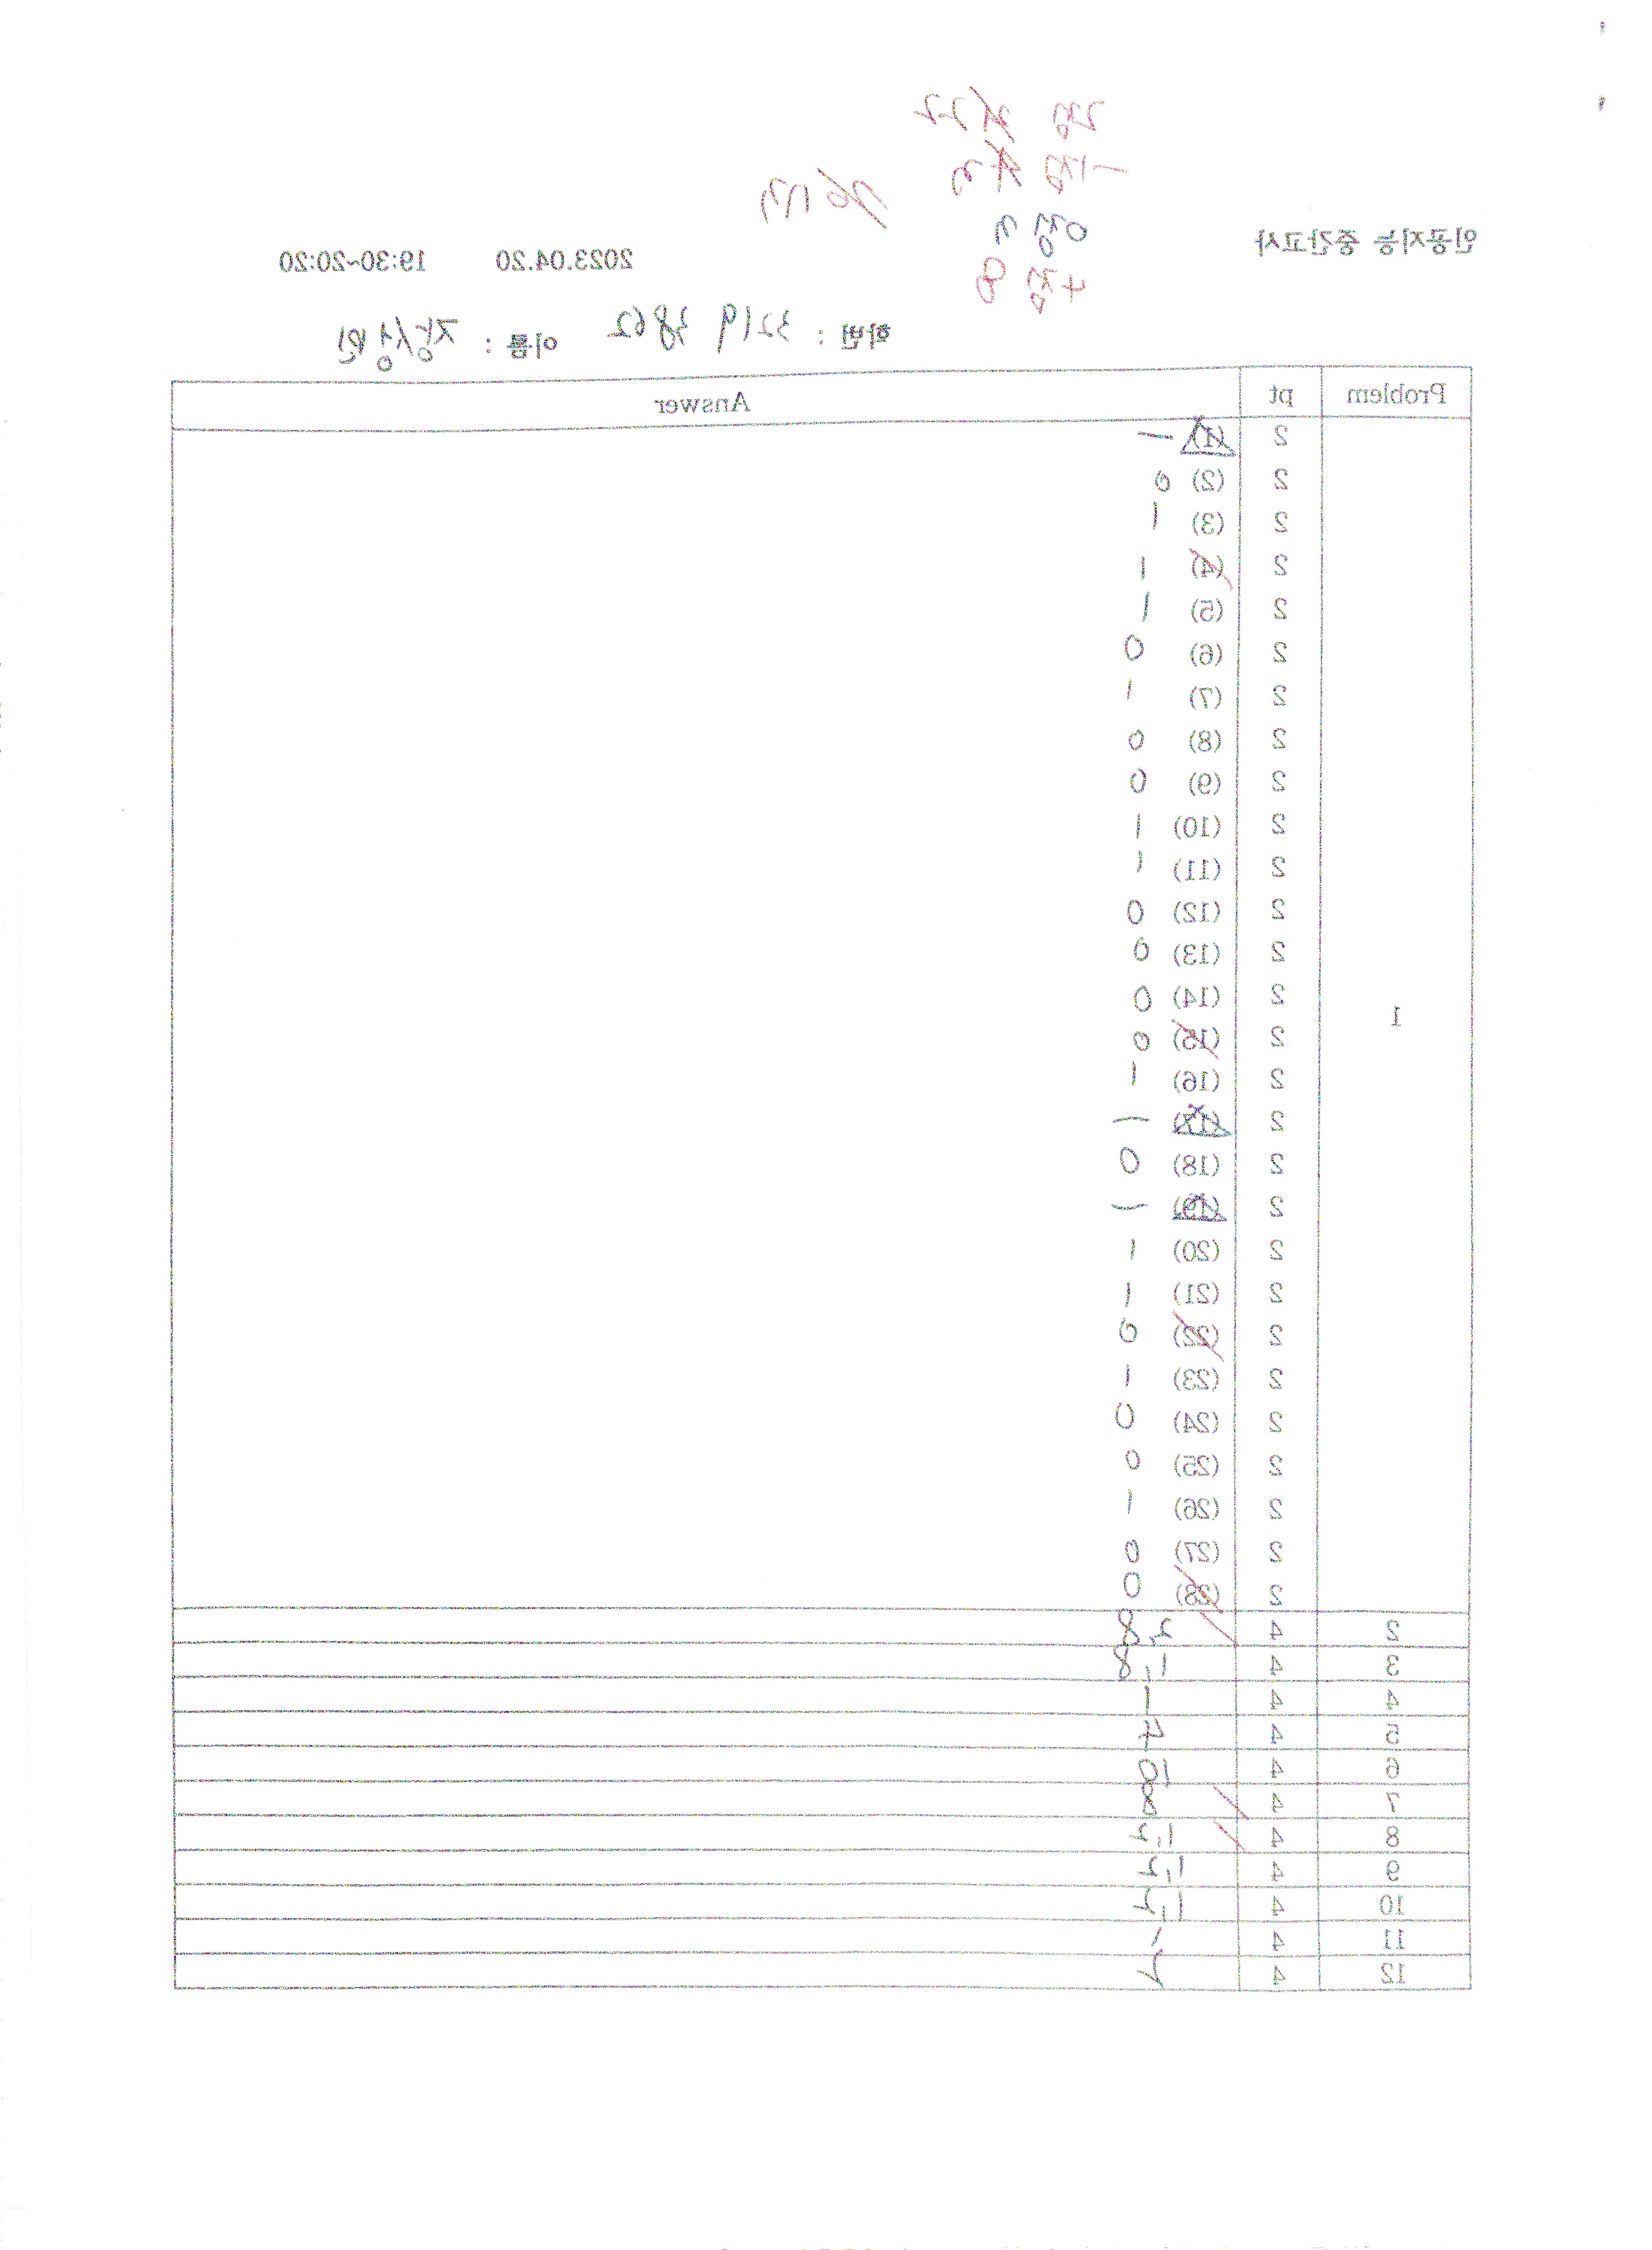 2점 22
-1점 3
0점 3
4점 8
인공지능 중간고사 2023.04.20 19:30~20:20
학번 : 3219 3862 이름 :
Problem pt Answer
1
2 (1) —
2 (2) 0
2 (3) 1
2 (4) 1
2 (5) 1
2 (6) 0
2 (7) 1
2 (8) 0
2 (9) 0
2 (10) 1
2 (11) 1
2 (12) 0
2 (13) 0
2 (14) 0
2 (15) 0
2 (16) 1
2 (17) —
2 (18) 0
2 (19) —
2 (20) 1
2 (21) 1
2 (22) 0
2 (23) 1
2 (24) 0
2 (25) 0
2 (26) 1
2 (27) 0
2 (28) 0
2 4 2,8
3 4 1,8
4 4 1
5 4 4
6 4 10
7 4 8
8 4 1,2
9 4 1,2
10 4 1,2
11 4 1
12 4 2